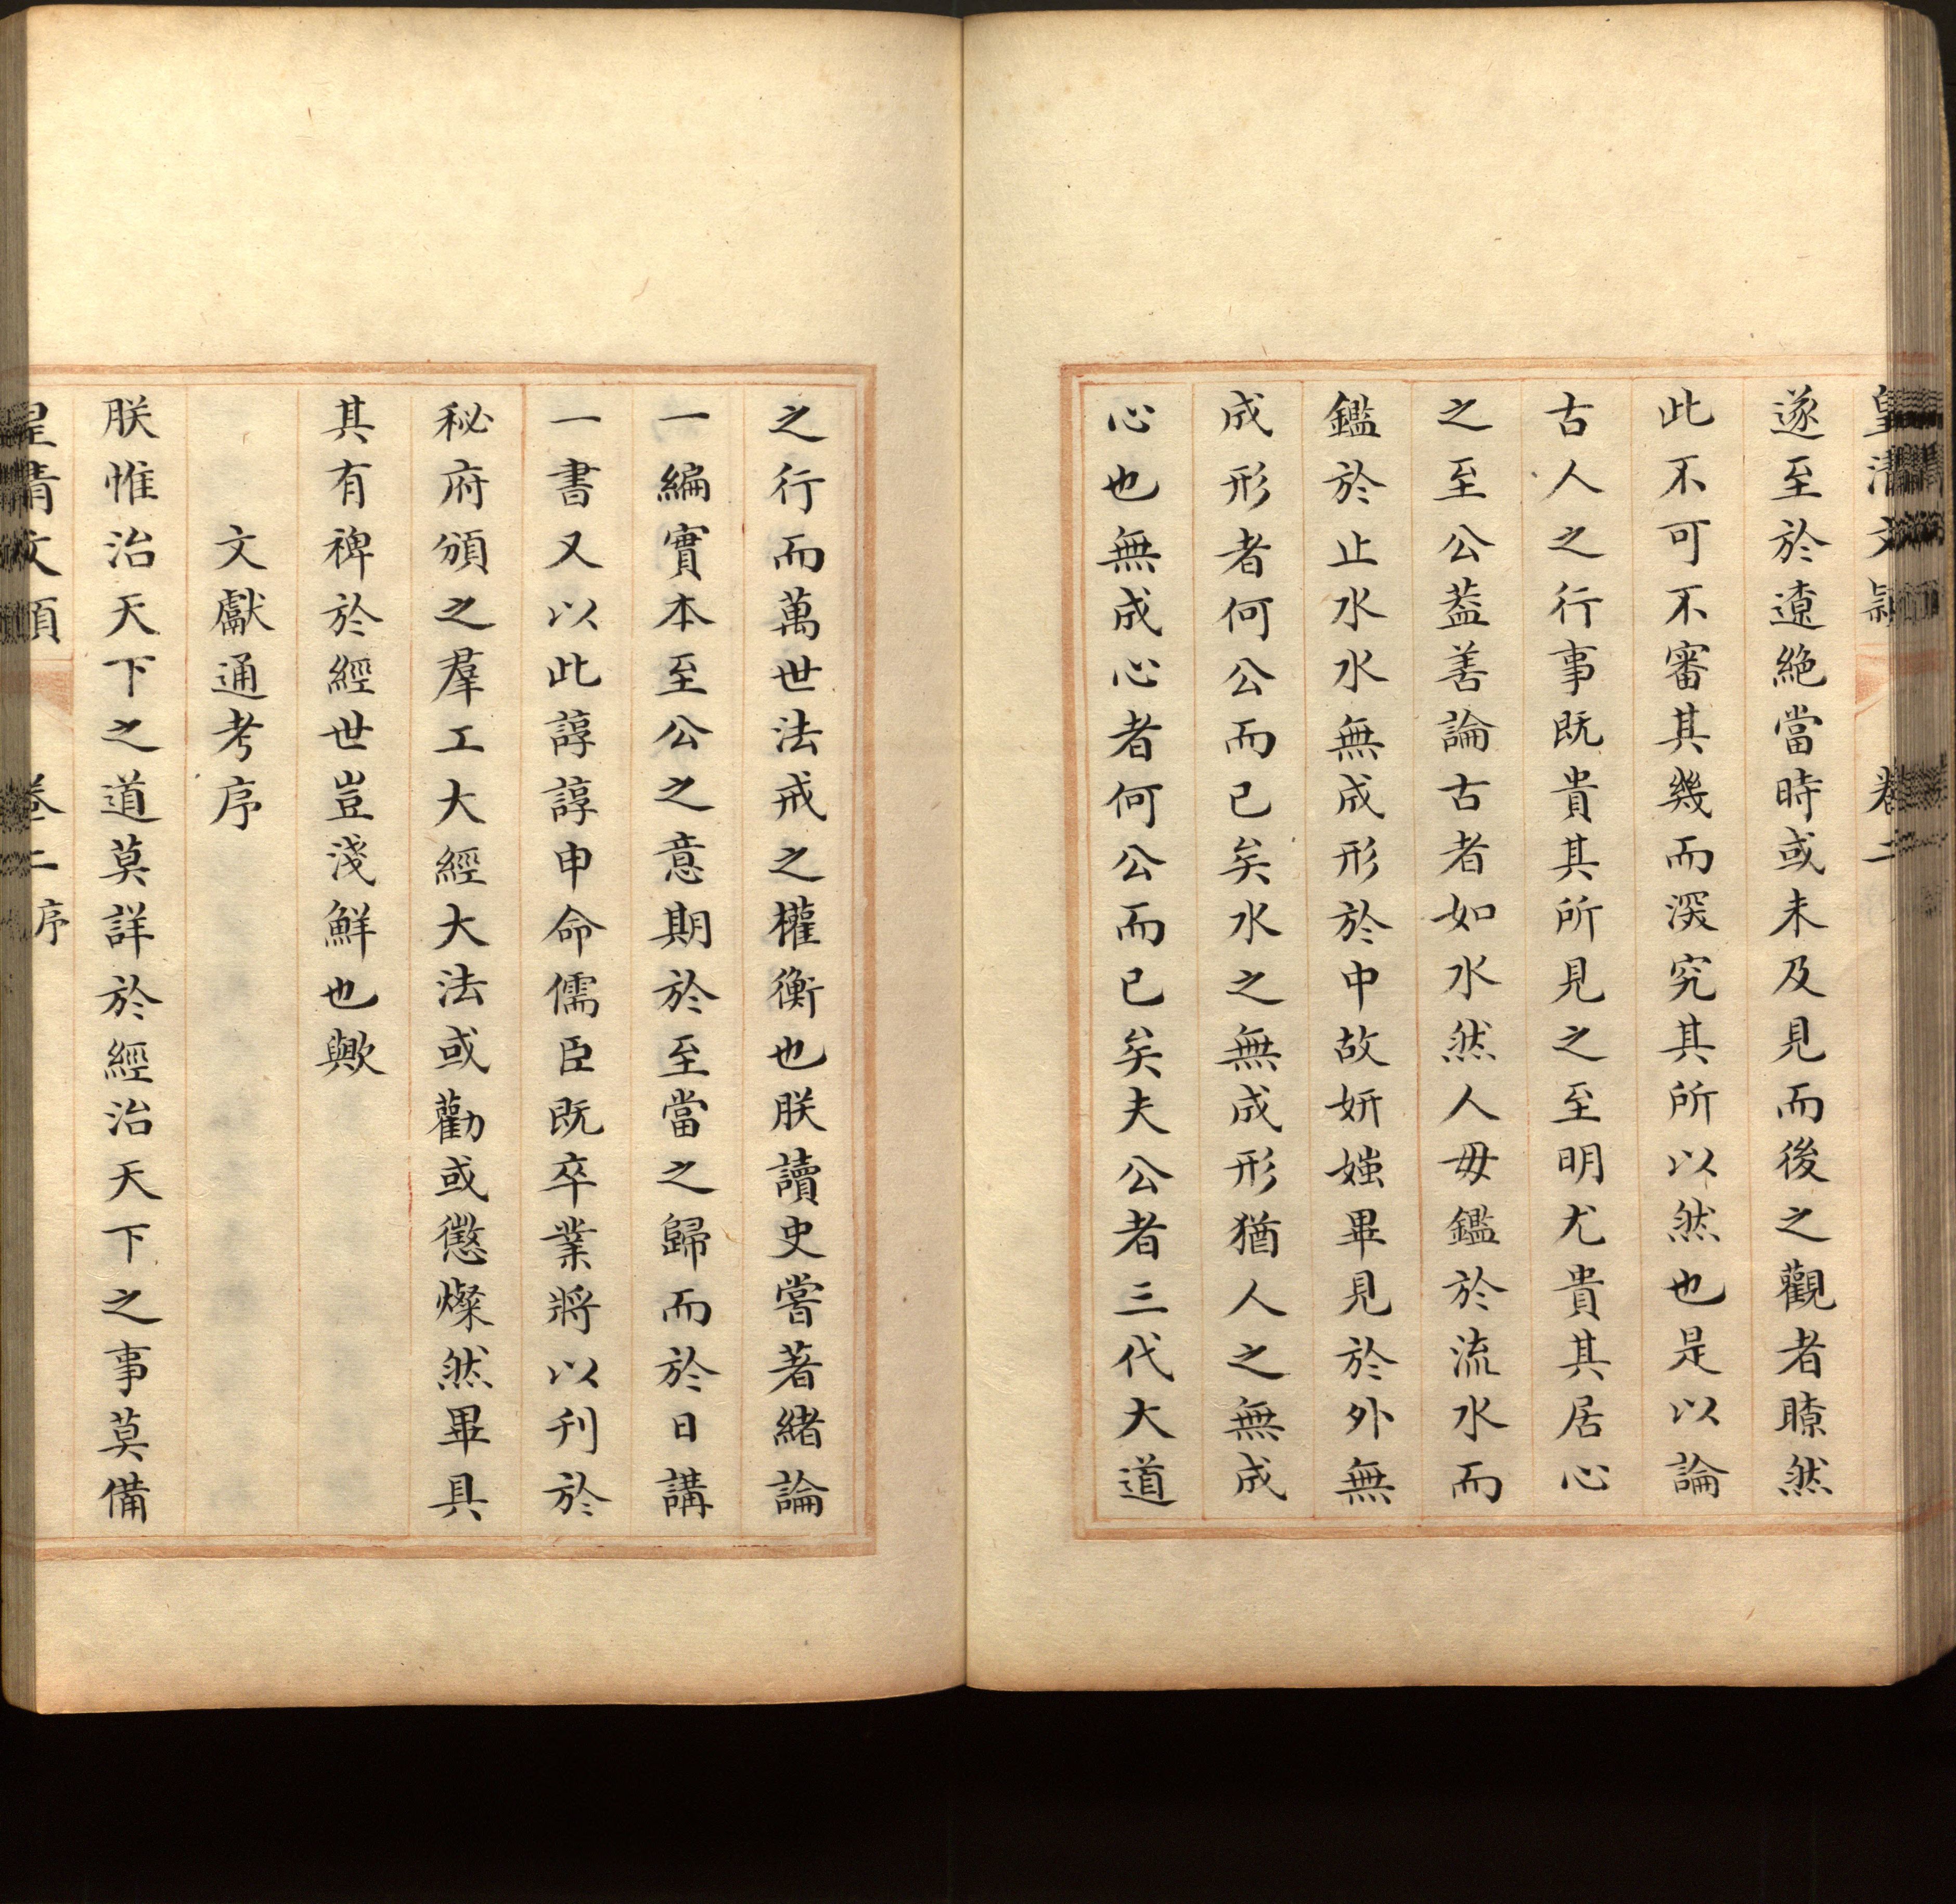 皇清文穎 卷二
遂至於遼絶當時或未及見而後之觀者瞭然
此不可不審其幾而深究其所以然也是以論
古人之行事既貴其所見之至明尤貴其居心
之至公葢善論古者如水然人毋鑑於流水而
鑑於止水水無成形於中故妍媸畢見於外無
成形者何公而已矣水之無成形猶人之無成
心也無成心者何公而已矣夫公者三代大道
之行而萬世法戒之權衡也朕讀史嘗著緒論
一編實本至公之意期於至當之歸而於日講
一書又以此諄諄申命儒臣既卒業將以刋於
秘府頒之羣工大經大法或勸或懲燦然畢具
其有裨於經世豈淺鮮也歟
文獻通考序
朕惟治天下之道莫詳於經治天下之事莫備
皇清文穎 卷二 序